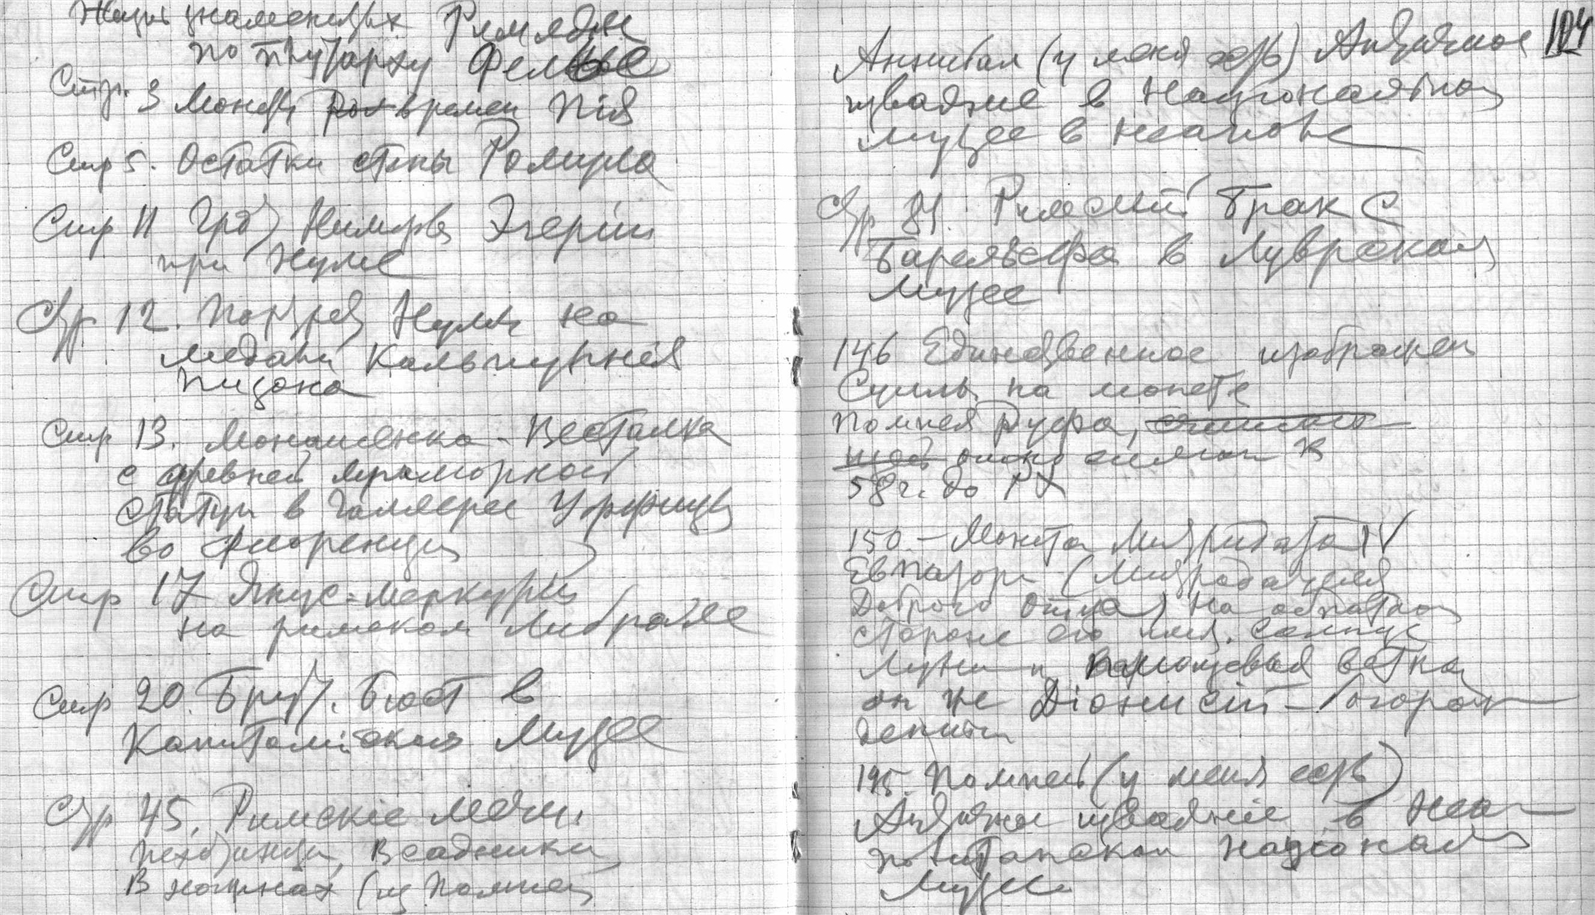 Жизнь знаменитых Римлян
по Плутарху
Стр. 3 Монета времен Пія
Стр 5. Остатки стены Ромула
Стр 11 Нимфы Эгеріи
при Нуме
Стр 12. Портрет Нумы на
медали Кальпурнія
Пизона
Стр 13. Монашенка - Весталка
с древней мраморной
статуи в Галлерее Уффици
во Флоренции
Стр 17 Янус-Меркурій
на римском
Стр 20. Брут. Бюст в
Капитолійском Музее
Стр 45. Римскіе мечи.
Пехотинца, Всадника
В ножнах (из Помпеи
124
Аннибал (у меня есть) Античное
изваяніе в Націонаяльном
Музее в Неаполе
Стр 81. Римскій брак с
барельефа в Луврском
Музее
146 Единственное изображен
Суллы на монете
Помпея Руфа,
58 г. до РХ
150 - Монета Митридата IV
Евпатора (Митридат
Доброго Отца) На обратной
стороне его имя. Солнце
Луна и ветка
он же Діонисій -
195. Помпей (у меня есть)
Античное изваяніе в Неа-
политанском Націонал
Музее